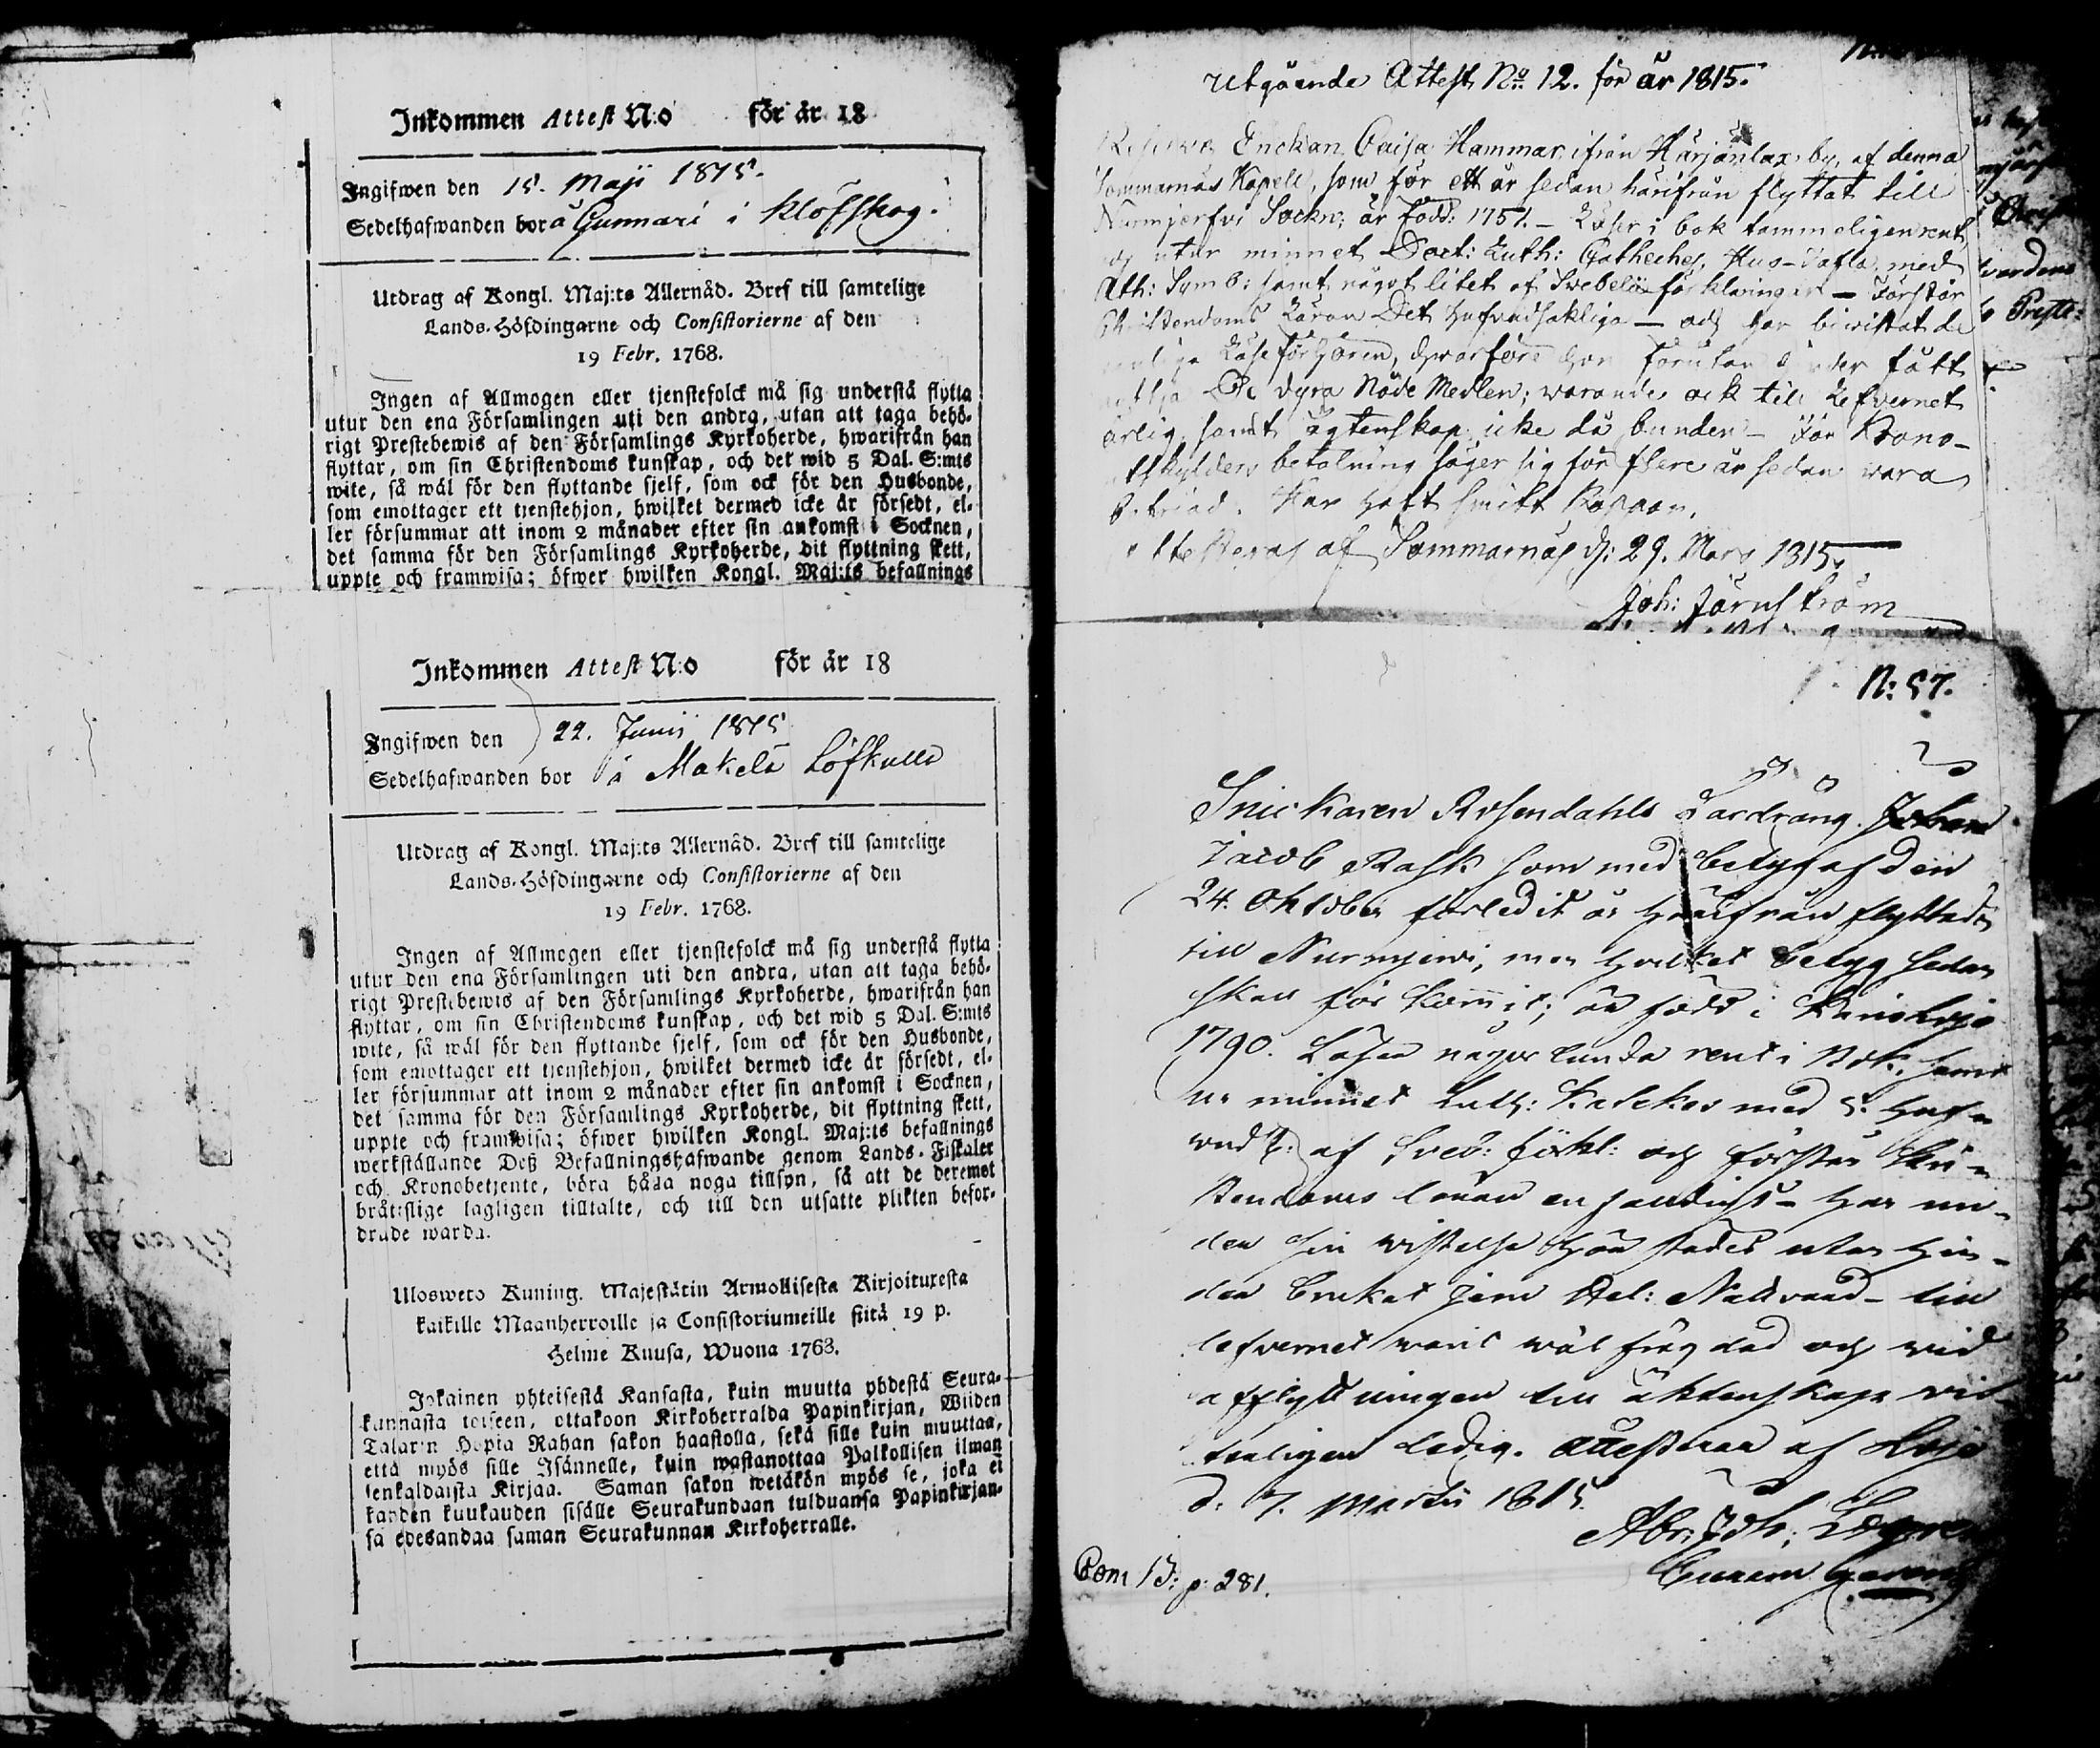 Inkommen Attest N:o för år 18
Ingifwen den 15. Maji 1815.
Sedelhafwanden bor å Gunnari i Klöfskog.
Utdrag af Kongl. Maj:ts Allernåd. Bref till samtelige
Lands-Höfdingarne och Consistorierne af den
19 Febr. 1768.
Ingen af Allmogen eller tjenstefolck må sig understå flytta
utur den ena Församlingen uti den andra, utan att taga behö-
rigt Prestebewis af den Församlings Kyrkoherde, hwarifrån han
flyttar, om sin Christendoms kunskap, och det wid 5 Dal. S:mts
wite, så wäl för den flyttande sjelf, som ock för den Husbonde,
som emottager ett tjenstehjon, hwilket dermed icke är försedt, el-
ler försummar att inom 2 månader efter sin ankomst i Socknen,
det samma för den Församlings Kyrkoherde, dit flyttning skett,
uppte och framwisa; öfwer hwilken Kongl. Maj:ts befallnings
Inkommen Attest N:o för år 18
Ingifwen den 22. Junij 1815
Sedelhafwanden bor å Makelä Löfkulla
Utdrag af Kongl. Maj:ts Allernåd. Bref till samtelige
Lands-Höfdingarne och Consistorierne af den
19 Febr. 1768.
Ingen af Allmogen eller tjenstefolck må sig understå flytta
utur den ena Församlingen uti den andra, utan att taga behö-
rigt Prestebewis af den Församlings Kyrkoherde, hwarifrån han
flyttar, om sin Christendoms kunskap, och det wid 5 Dal. S:mts
wite, så wäl för den flyttande sjelf, som ock för den Husbonde,
som emottager ett tjenstehjon, hwilket dermed icke är försedt, el-
ler försummar att inom 2 månader efter sin ankomst i Socknen,
det samma för den Församlings Kyrkoherde, dit flyttning skett,
uppte och framwisa; öfwer hwilken Kongl. Maj:ts befallnings
werkställande Deß Befallningshafwande genom Lands-Fiskaler
och Kronobetjente, böra hålla noga tillsyn, så att de deremot
bråtslige lagligen tilltalte, och till den utsatte plikten befor-
drade warda.
Ulosweto Kuning. Majestätin Armollisesta Kirjoituxesta
kaikille Maanherroille ja Consistoriumeille siitä 19 p.
Helme Kuusa, Wuona 1768.
Jokainen yhteisestä Kansasta, kuin muutta yhdestä Seura-
kunnasta toiseen, ottakoon Kirkoherralda Papinkirjan, Wiiden
Talarin Hopia Rahan sakon haastolla, sekä sille kuin muuttaa,
että myös sille Isännelle, kuin wastanottaa Palkollisen ilman
senkaldaista Kirjaa. Saman sakon wetäkön myös se, joka ei
kahden kuukauden sisälle Seurakundaan tulduansa Papinkirjan-
sa edesandaa saman Seurakunnan Kirkoherralle.
Utgående Attest No 12. för år 1815.
Enckan Caisa Hammar ifrån Härjänlax by, af denna
Sommarnäs Kapell, som för ett år sedan härifrån flyttat till
Nurmjerfvi Sockn; är född: 1751. - Läser i bok tammeligen rent
och utur minnet Doct: Luth: Catheches, Hus-Tafla med
Ath: Symb: samt något litet af Swebelii förklaringar - Förstår
Christendoms Läran Det hufvudsakliga - och har biwistat de
Läseförhören, hwarföre hon förutan hinder fått
De dyra Nåde Medlen; warande ock till Lefvernet
ärlig, samt ägtenskap icke då bunden - För Krono-
utskylders betalning säger sig för flere år sedan wara
befriad. Har haft smitt Koppor.
Attesteras af Sommarnäs d: 29. Mars 1815.
Joh: Järnström
N: 57.
Snickaren Rosendahls Lärdräng Johan
Jacob Rask som med betyg af den
24. Oktober förledit år härifrån flyttade
till Nurmjerwi, men hvilket betyg sedan
skall förkommit; är född i Karislojo
1790. Läser någorlunda rent i Bok, samt
ur minnet Luth: Katekes med
af Sveb: förkl: och förstår Kri-
stendoms läran enfaldigt - har un-
der sin vistelse här städes utan hin-
der brukat sina Hel: Nattvard - till
lefvernet varit wäl frägdad och vid
afflyttningen till äktenskap vit-
terligen ledig. Attesteras af Lojo
d: 7. Martii 1815.
Abr: Joh:
Com 13: p: 281.